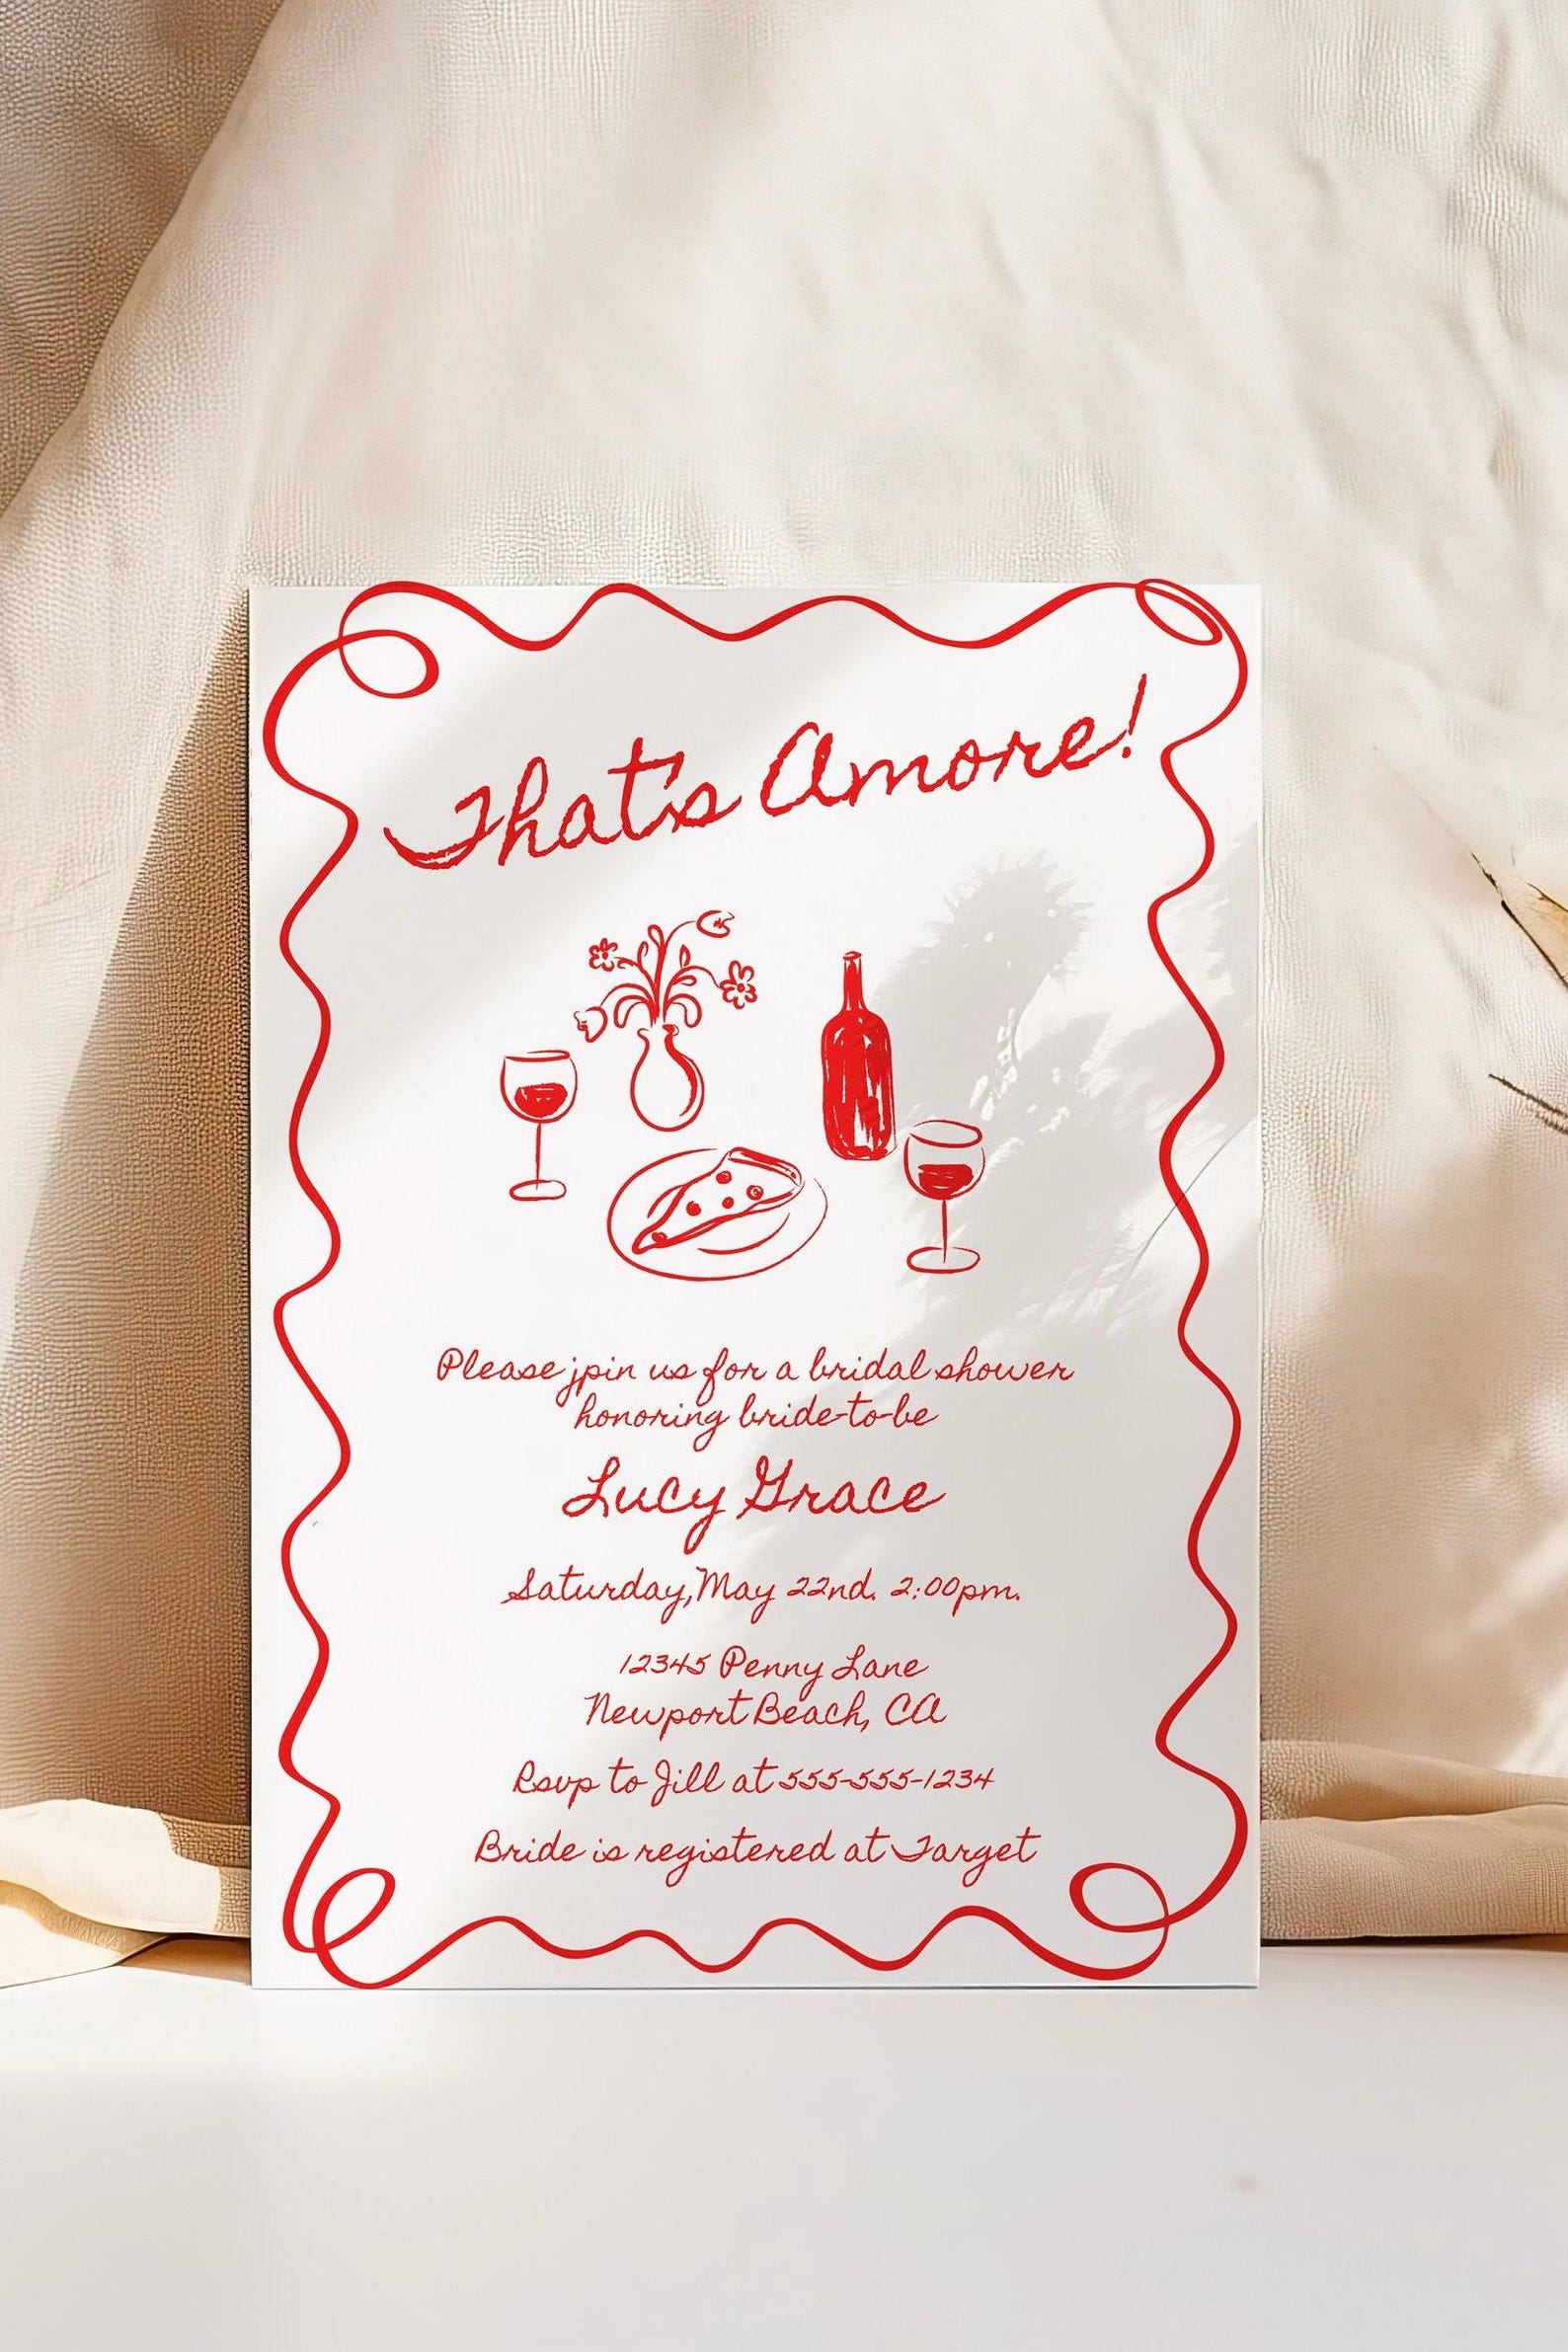 That's Amore!
Please jpin us for a bridal shower
honoring bride-to-be
Lucy Grace
Saturday, May 22nd. 2:00pm.
12345 Penny Lane
Newport Beach, CA
Rsvp to Jill at 555-555-1234
Bride is registered at Target